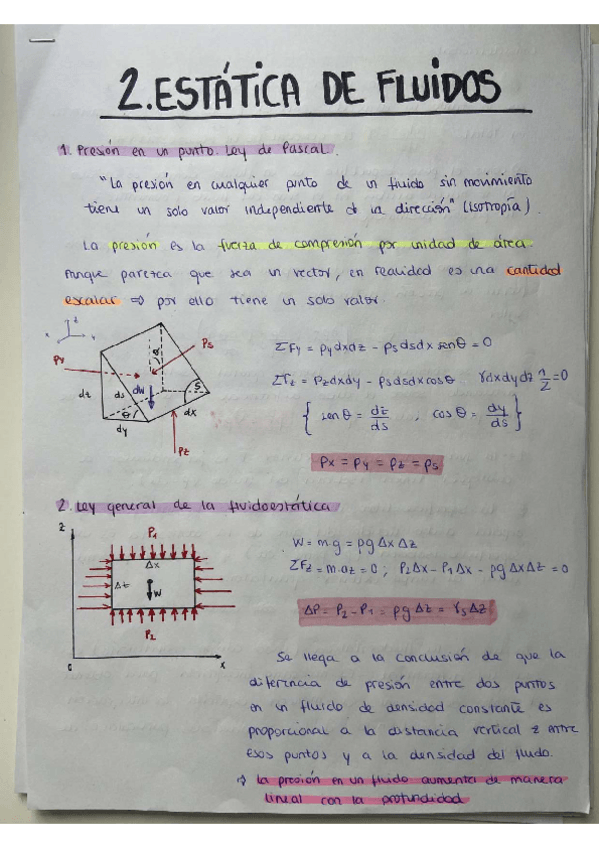 2. ESTÁTICA DE FLUIDOS
1. Presión en un punto. Ley de Pascal.
"La presión en cualquier punto de un fluido sin movimiento
tiene un solo valor independiente de la dirección" (isotropía).
La presión es la fuerza de compresión por unidad de área
Aunque parezca que sea un vector, en realidad es una cantidad
escalar ⇒ por ello tiene un solo valor.
z
x
Ps
Py
dz
ds
dW
θ
S
dx
dy
Pz
ΣFy = pydxdz - psdsdx senθ = 0
ΣFz = Pzdxdy - psdsdxcosθ γdxdydz 1/2 = 0
{ senθ = dz/ds , cosθ = dy/ds }
Px = Py = Pz = Ps
2. Ley general de la fluidoestática
z
P1
Δx
Δz
W
P2
0
x
W = m·g = ρgΔxΔz
ΣFz = m·az = 0 ; P2Δx - P1Δx - ρgΔxΔz = 0
ΔP = P2 - P1 = ρgΔz = γsΔz
Se llega a la conclusión de que la
diferencia de presión entre dos puntos
en un fluido de densidad constante es
proporcional a la distancia vertical z entre
esos puntos y a la densidad del fluido.
⇒ la presión en un fluido aumenta de manera
lineal con la profundidad